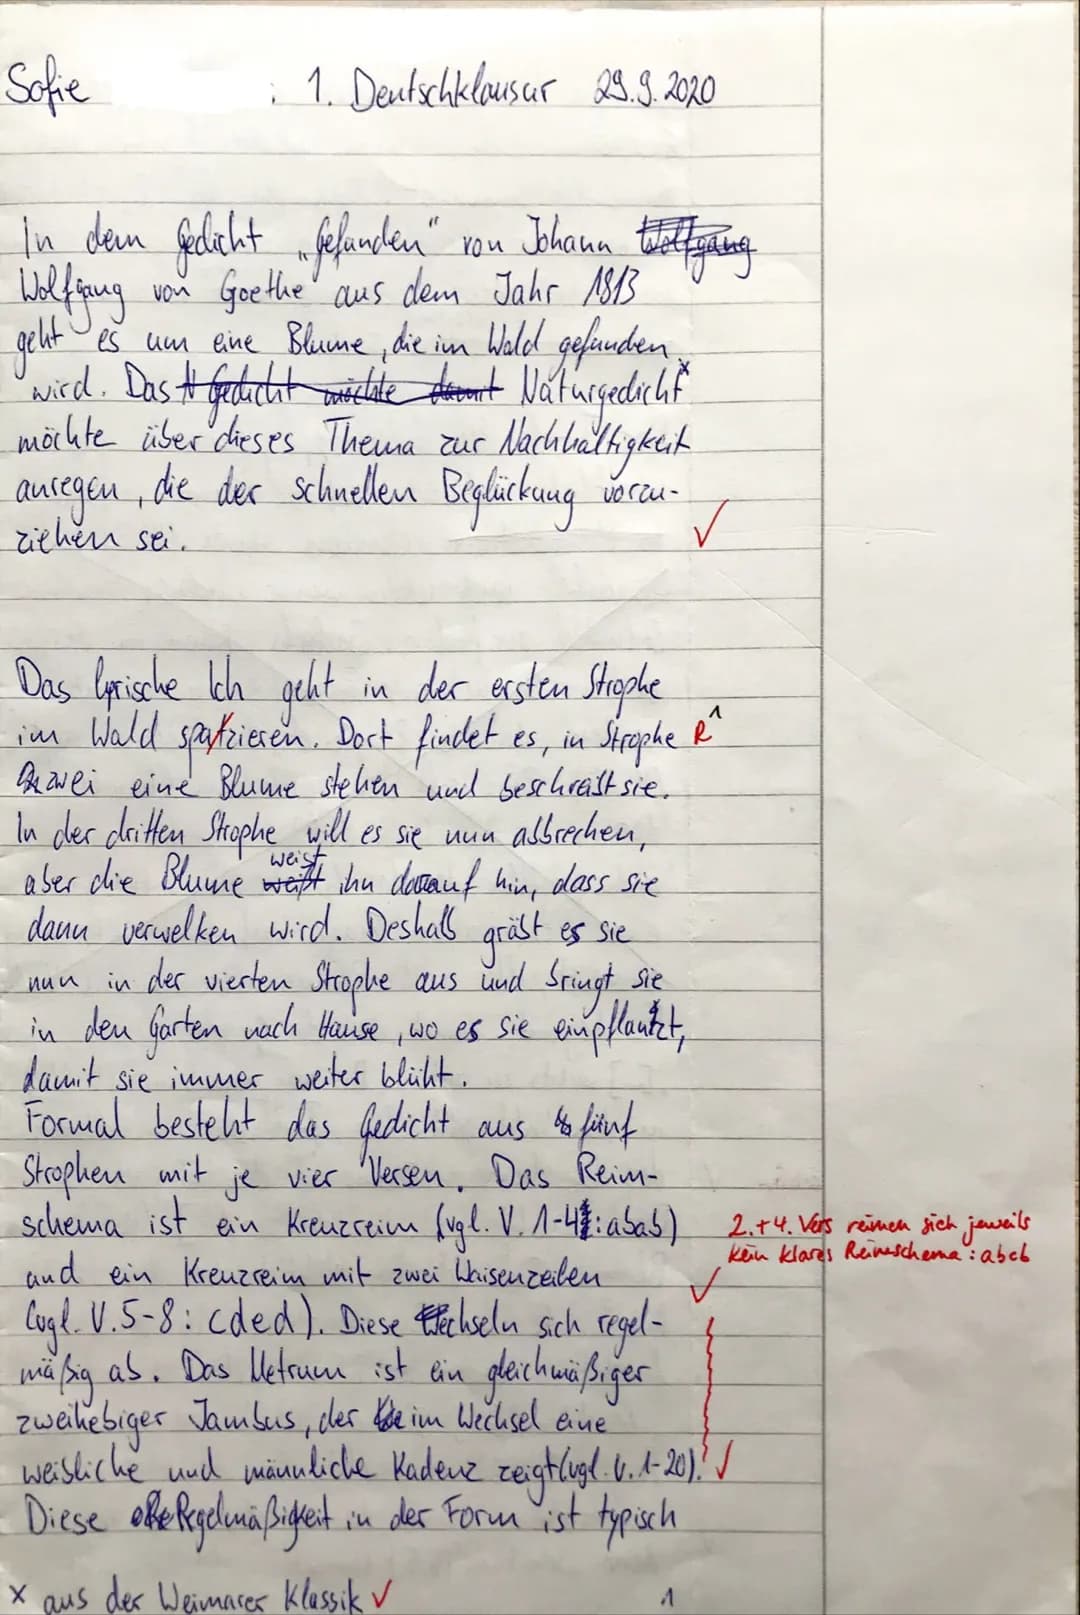 Sofie 1. Deutschklausur 29.9.2020
In dem Gedicht „Gefunden" von Johann Wolfgang
Wolfgang von Goethe aus dem Jahr 1813
geht es um eine Blume, die im Wald gefunden
wird. Das Gedicht möchte damit Naturgedicht x
möchte über dieses Thema zur Nachhaltigkeit
anregen, die der schnellen Beglückung vorzu-
ziehen sei. ✓
Das lyrische Ich geht in der ersten Strophe
im Wald spatzieren. Dort findet es, in Strophe R
zwei eine Blume stehen und beschreibt sie.
In der dritten Strophe will es sie nun abbrechen,
weist
aber die Blume weißt ihn darauf hin, dass sie
dann verwelken wird. Deshalb gräbt es sie
nun in der vierten Strophe aus und bringt sie
in den Garten nach Hause, wo es sie einpflanzt,
damit sie immer weiter blüht.
Formal besteht das Gedicht aus fünf
Strophen mit je vier Versen. Das Reim-
schema ist ein Kreuzreim (vgl. V. 1-4: abab) 2.+4. Vers reimen sich jeweils
kein klares Reimschema: abcb
und ein Kreuzreim mit zwei Waisenzeilen ✓
(vgl. V. 5-8: cded). Diese wechseln sich regel-
mäßig ab. Das Metrum ist ein gleichmäßiger
zweihebiger Jambus, der im Wechsel eine
weibliche und männliche Kadenz zeigt (vgl. V. 1-20). ✓
Diese Regelmäßigkeit in der Form ist typisch
x aus der Weimarer Klassik ✓ 1